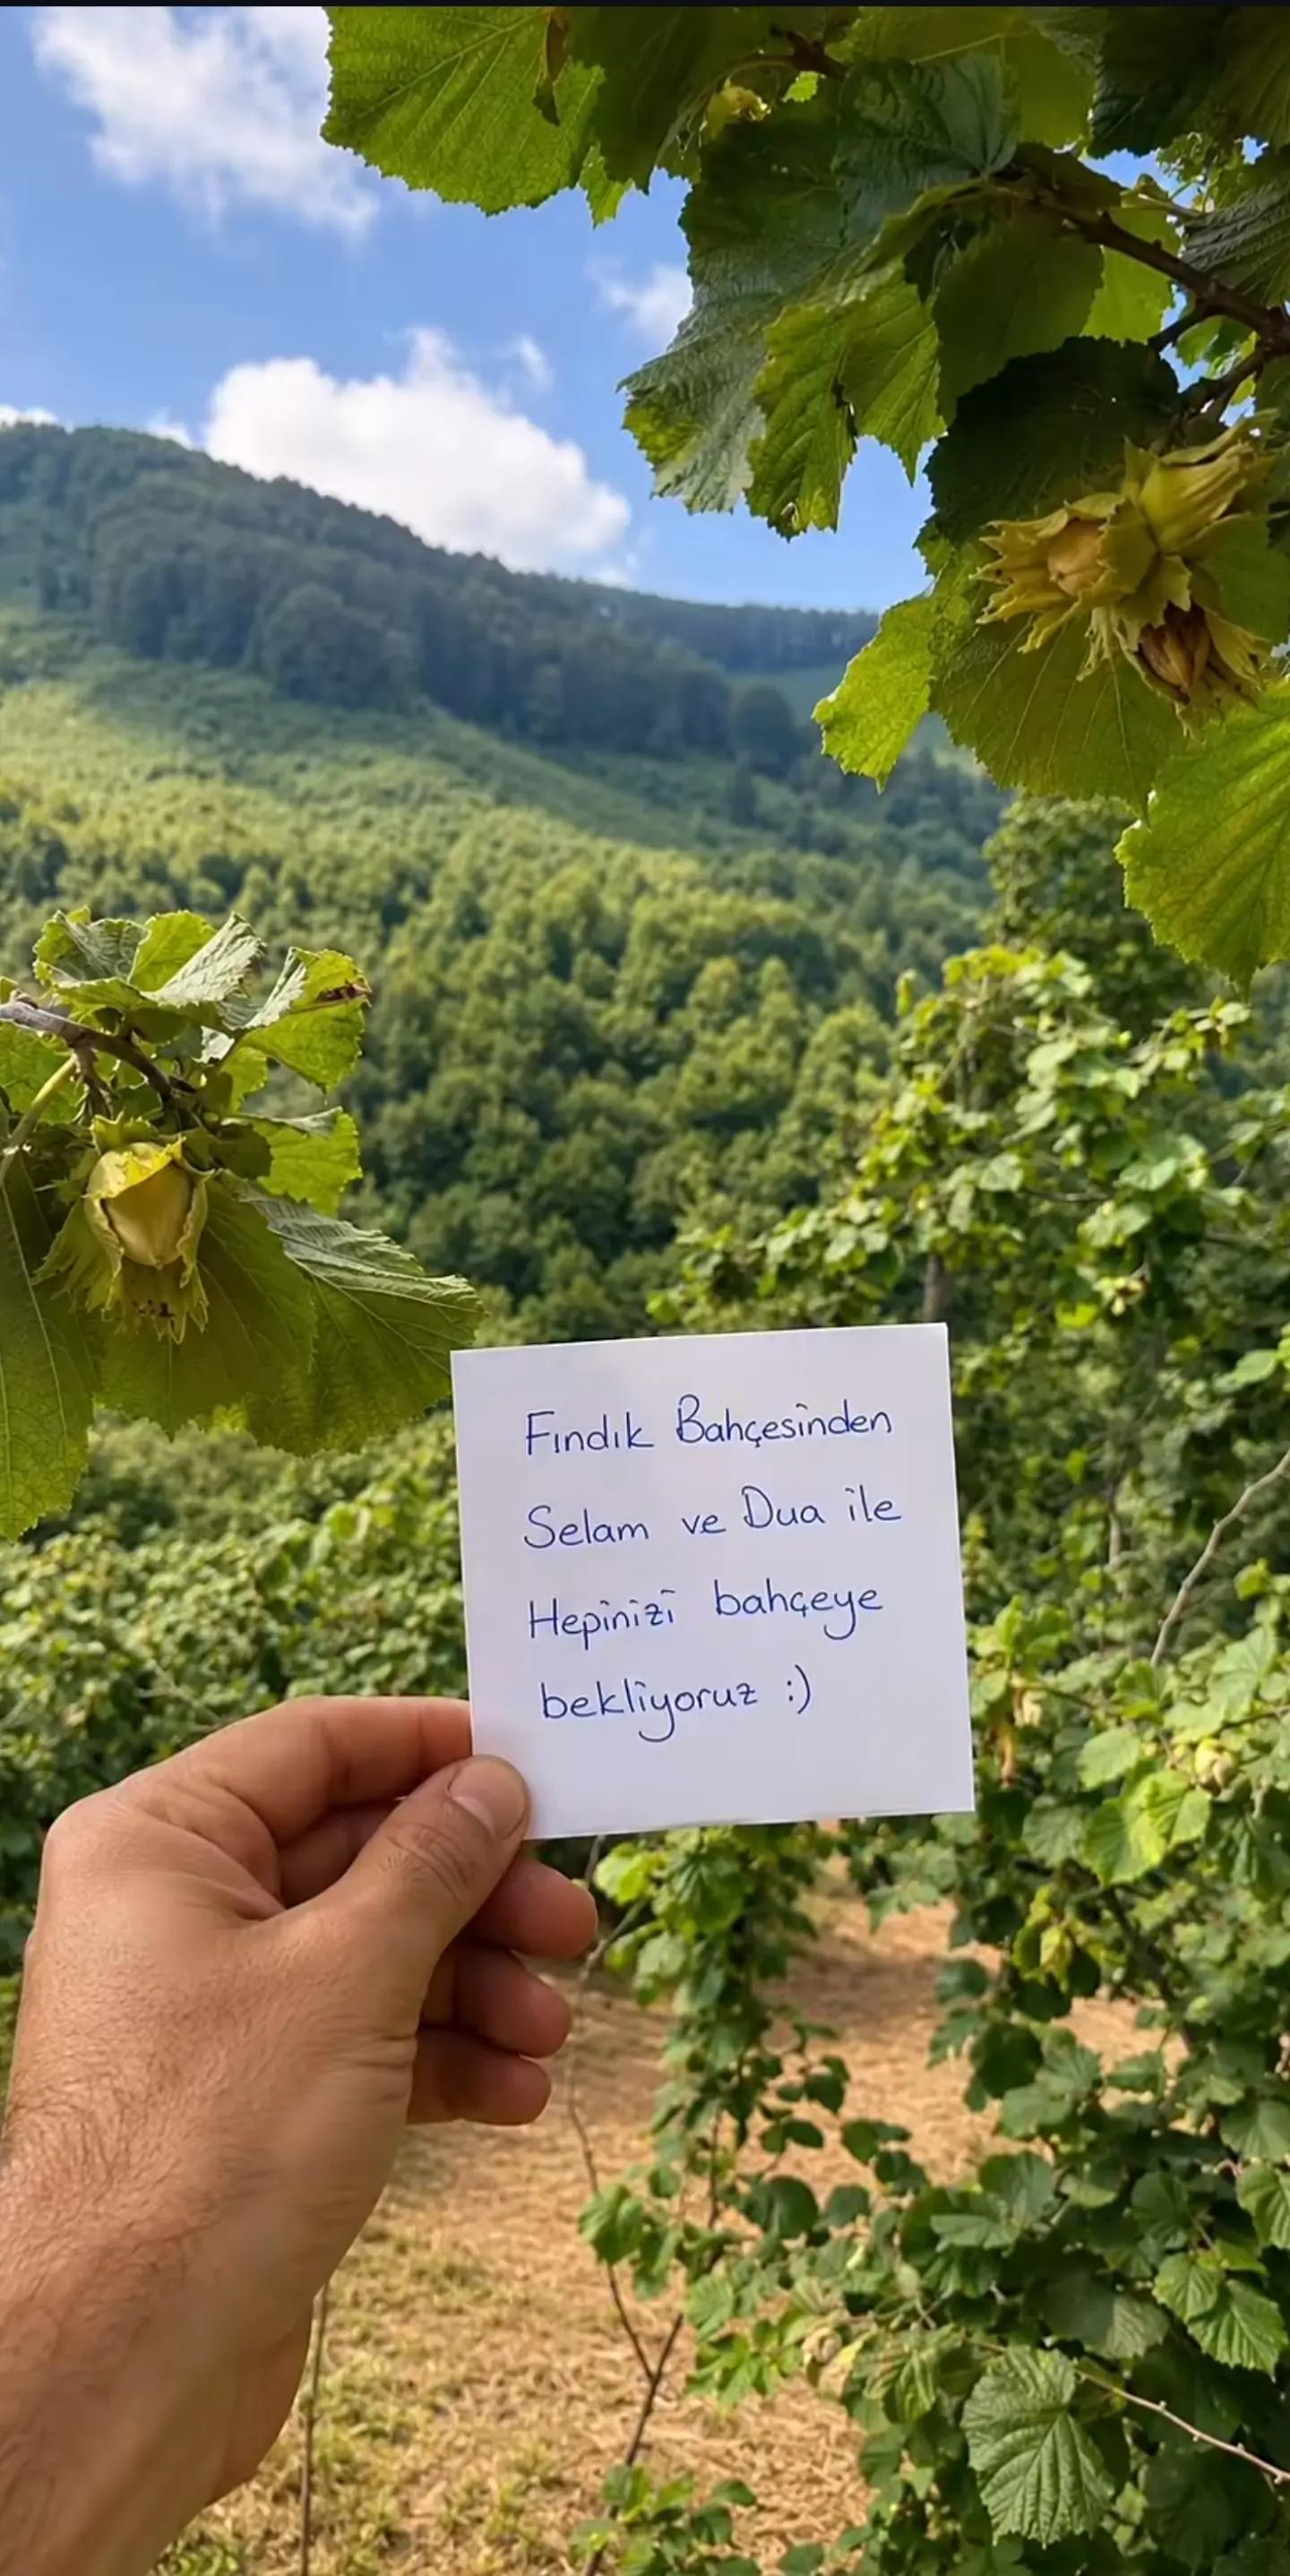 Fındık Bahçesinden
Selam ve Dua ile
Hepinizi bahçeye
bekliyoruz :)